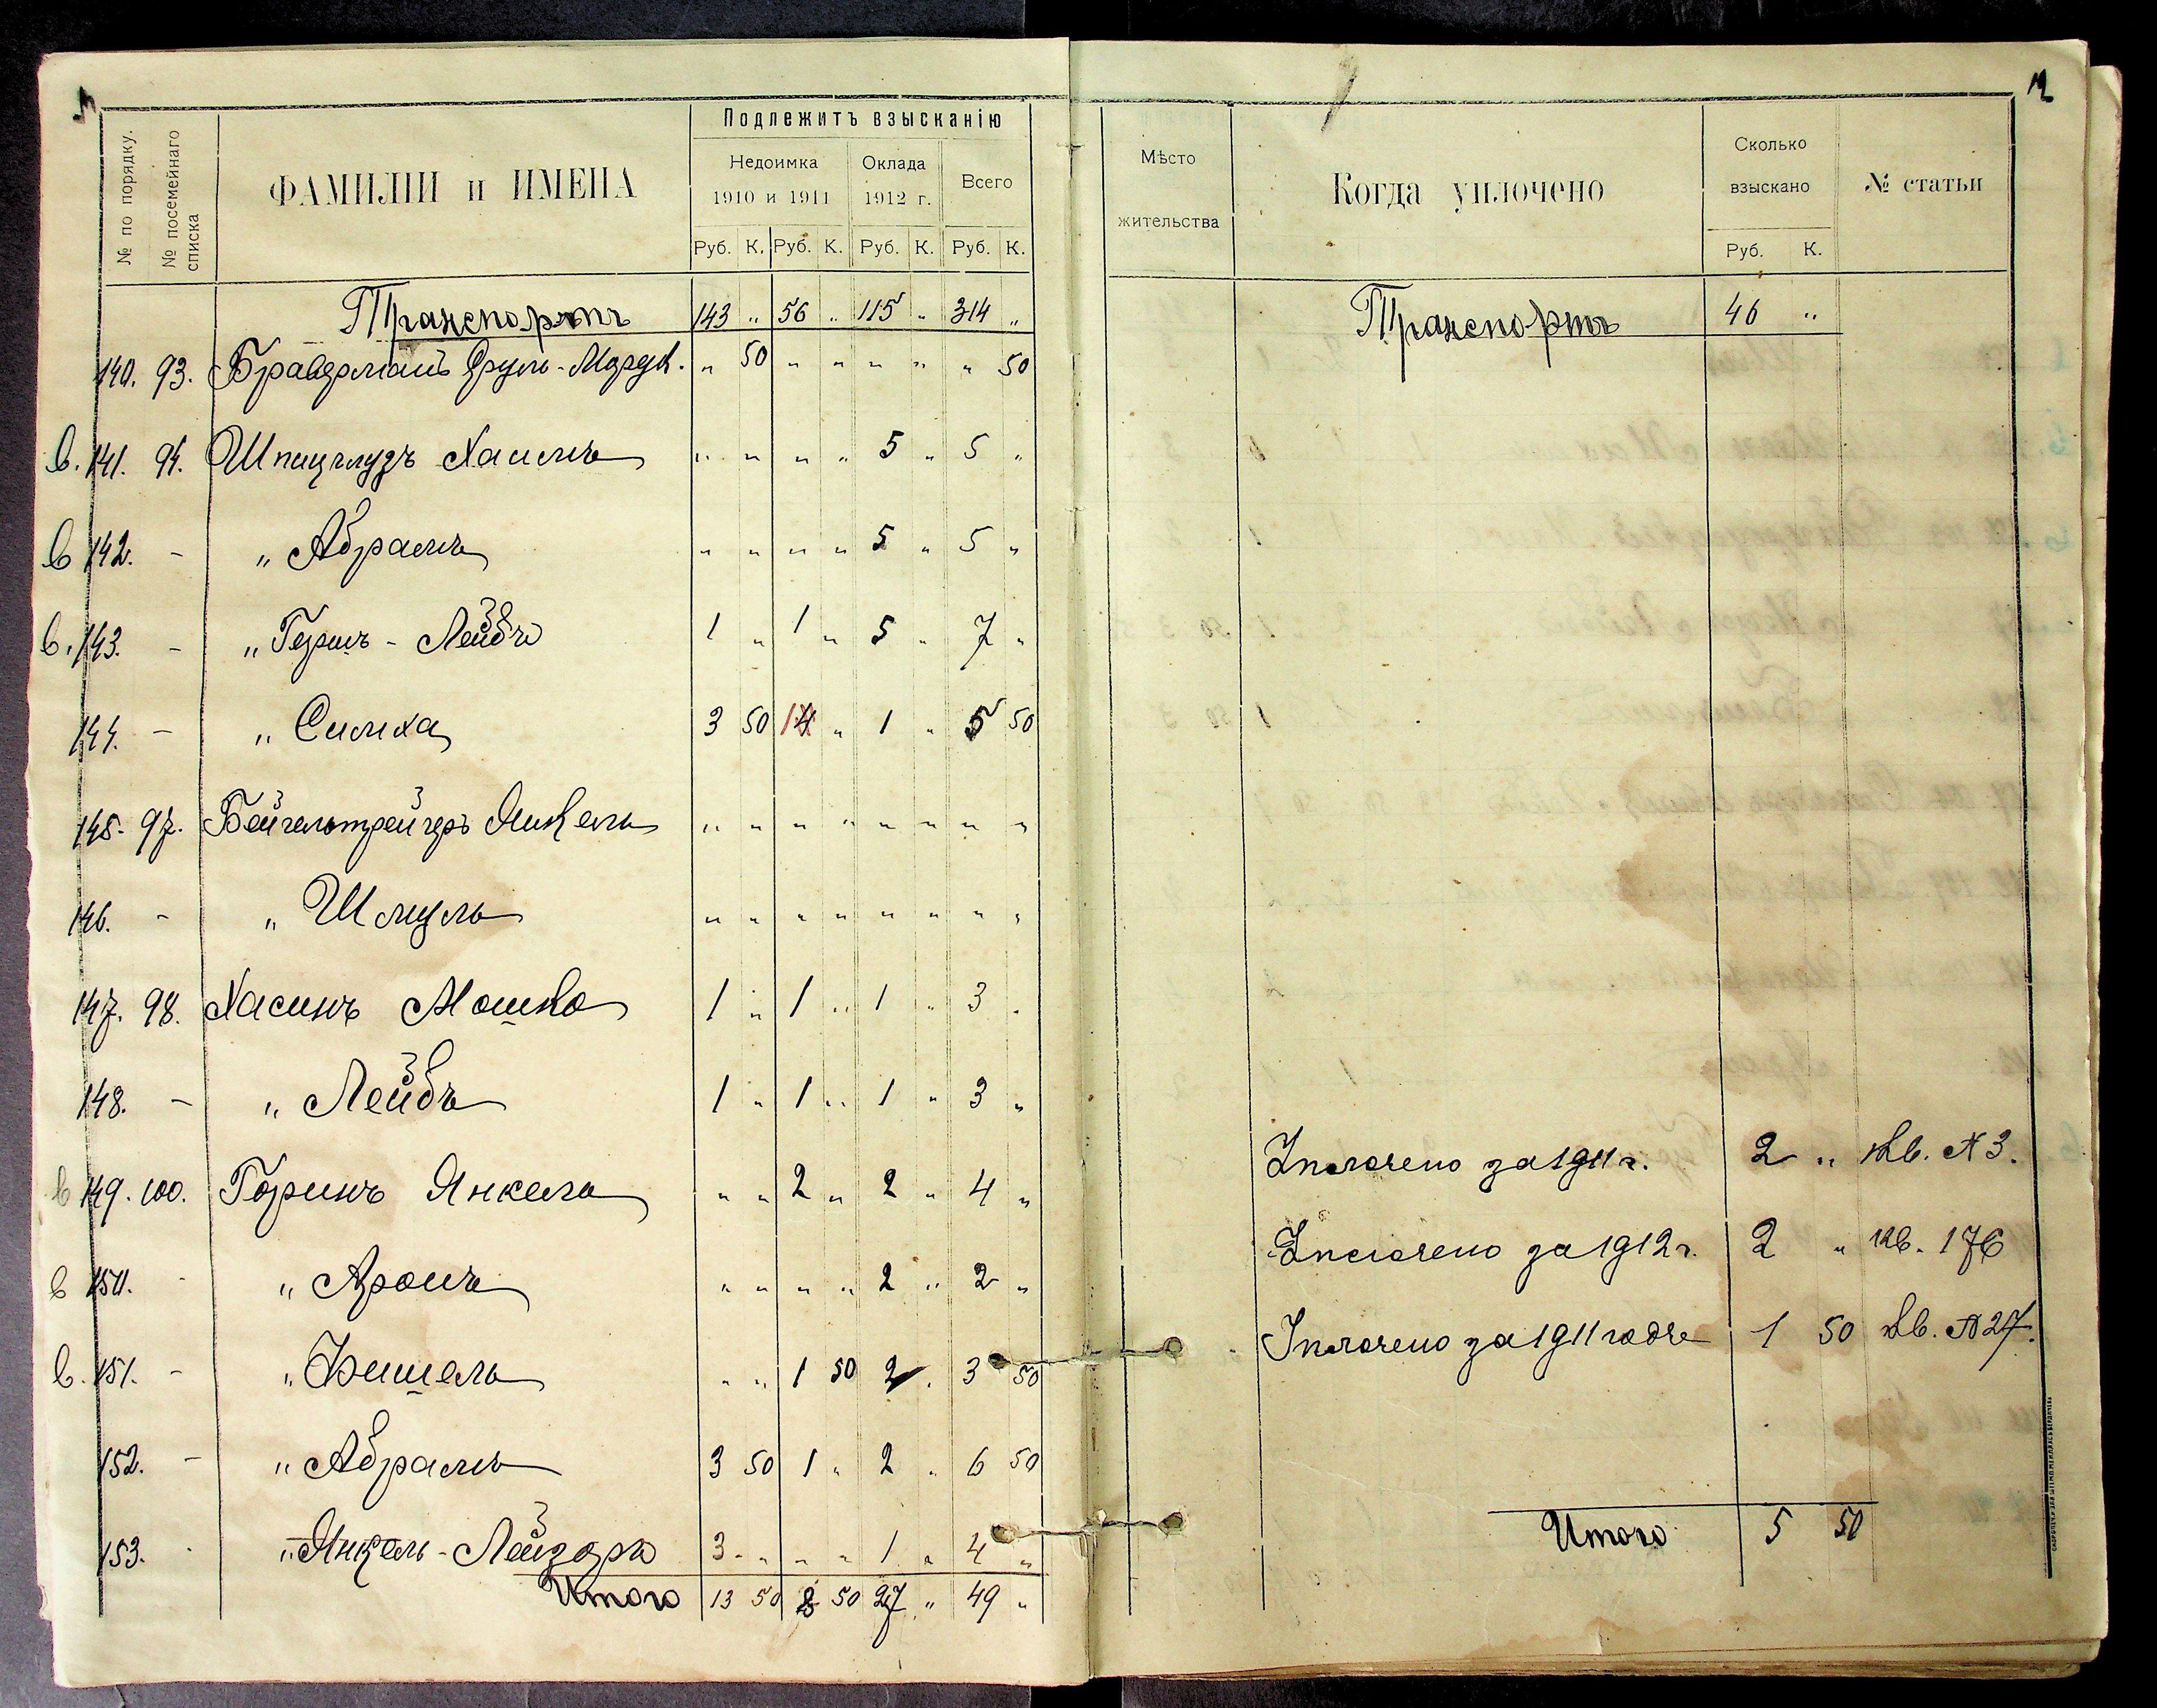 № по порядку.
№ посемейнаго списка
ФАМИЛІИ и ИМЕНА
Подлежитъ взысканію
Недоимка
1910 и 1911
Оклада
1912 г.
Всего
Руб. К. Руб. К. Руб. К. Руб. К.
Транспортъ 143 „ 56 „ 115 „ 314 „
140. 93. Бравдрманъ Сруль-Мордк. „ 50 „ „ „ „ „ 50
в. 141. 94. Шпицглузъ Хаимъ „ „ „ „ 5 „ 5 „
в 142. - „ Абрамъ „ „ „ „ 5 „ 5 „
в. 143. - „ Гершъ - Лейбъ 1 „ 1 „ 5 „ 7 „
144. - „ Симха 3 50 1 „ 1 „ 5 50
145. 97. Бейгельтрейгеръ Янкель „ „ „ „ „ „ „ „
146. - „ Шмуль „ „ „ „ „ „ „ „
147. 98. Хасинъ Мошко 1 „ 1 „ 1 „ 3 „
148. - „ Лейбъ 1 „ 1 „ 1 „ 3 „
в 149. 100. Горинъ Янкель „ „ 2 „ 2 „ 4 „
в 150. - „ Аронъ „ „ „ „ 2 „ 2 „
в. 151. - „ Фишель „ „ 1 50 2 „ 3 50
152. - „ Абрамъ 3 50 1 „ 2 „ 6 50
153. - „ Янкель-Лейзоръ 3 „ „ „ 1 „ 4 „
Итого 13 50 8 50 27 „ 49 „
12
Мѣсто
жительства
Когда уплочено
Сколько
взыскано
Руб. К.
№ статьи
Транспортъ 46 „
Уплочено за 1911 г. 2 „ кв. № 3.
Уплочено за 1912 г. 2 „ кв. 176
Уплочено за 1911 годъ 1 50 кв. № 27.
Итого 5 50